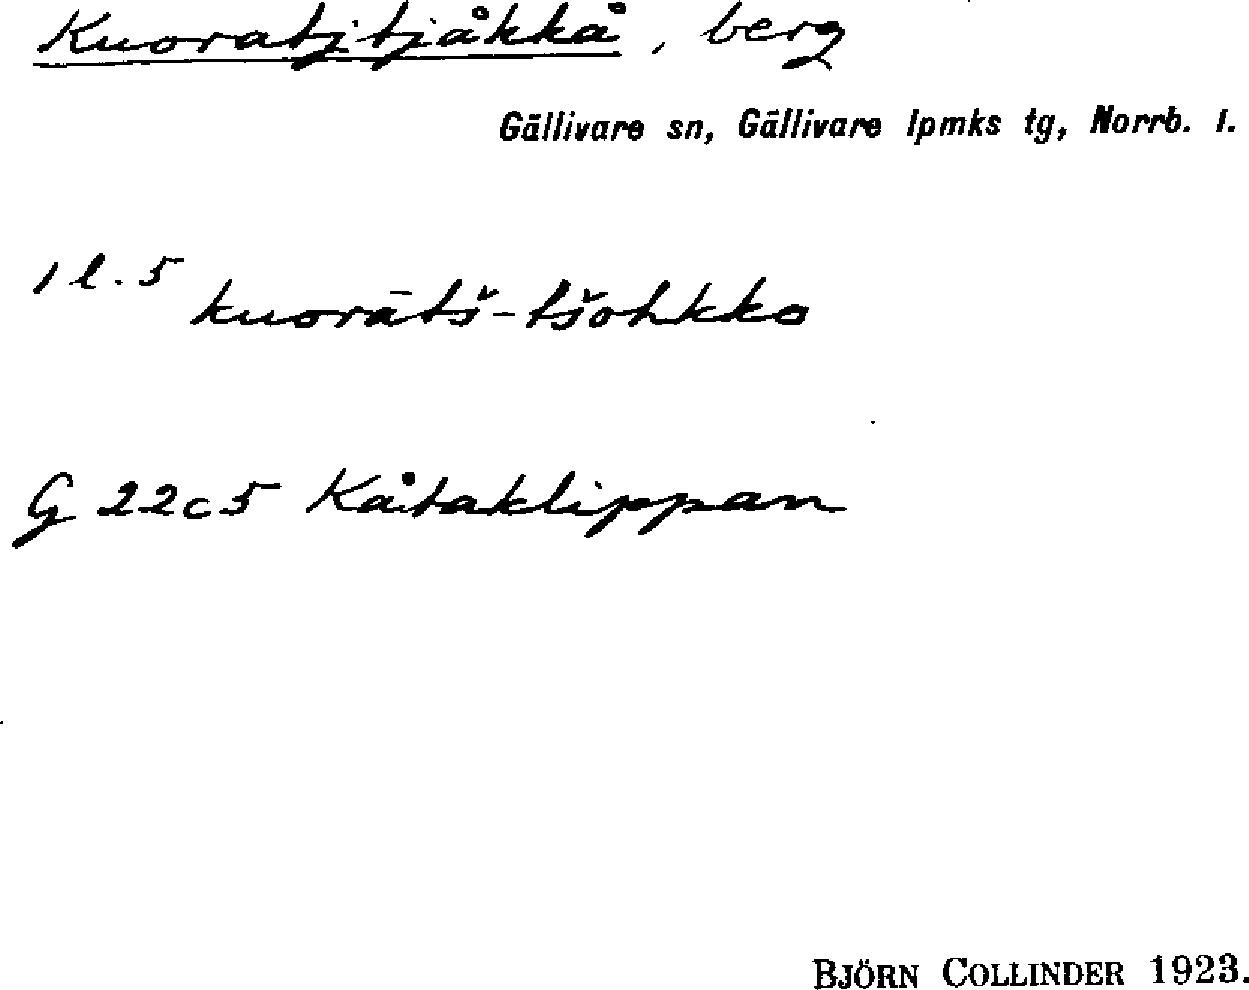 Kuoratjtjåkkå, berg
Gällivare sn, Gällivare lpmks tg, Norrb. l.
1 l. 5
kuorātš-tšohkko
G 22c5 Kåtaklippan
BJÖRN COLLINDER 1923.